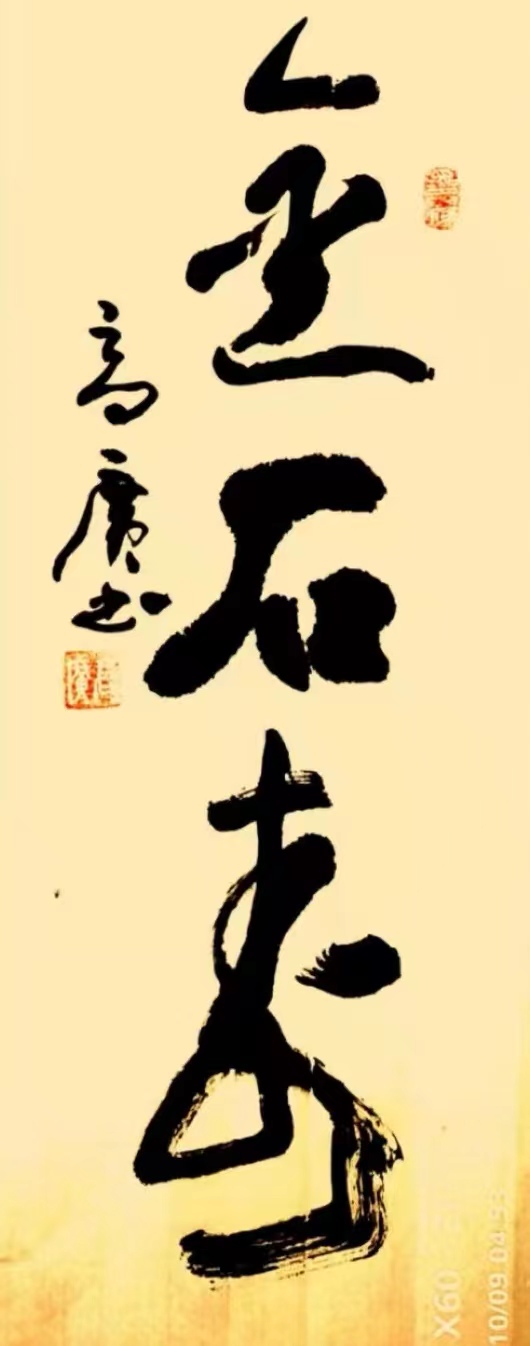 金石寿
高广书
X60
10/09 04:53